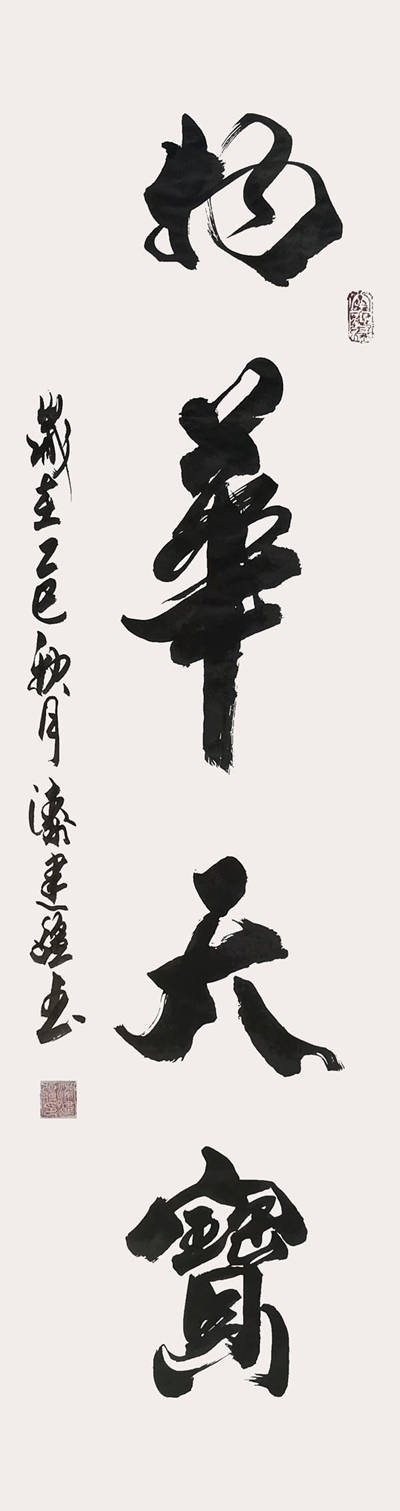 物華天寶
歲在乙巳秋月潘建雄書